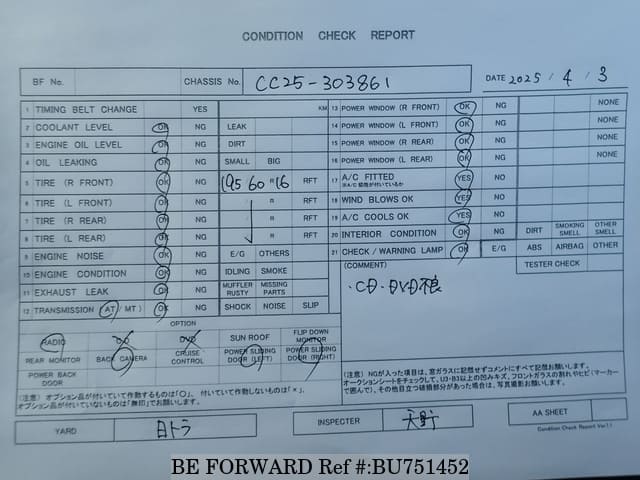 CONDITION CHECK REPORT
BF No. CHASSIS No. CC25-303861 DATE 2025/4/3
1 TIMING BELT CHANGE YES KM
2 COOLANT LEVEL OK NG LEAK
3 ENGINE OIL LEVEL OK NG DIRT
4 OIL LEAKING OK NG SMALL BIG
5 TIRE (R FRONT) OK NG 195 60 R 16 RFT
6 TIRE (L FRONT) OK NG R RFT
7 TIRE (R REAR) OK NG R RFT
8 TIRE (L REAR) OK NG R RFT
9 ENGINE NOISE OK NG E/G OTHERS
10 ENGINE CONDITION OK NG IDLING SMOKE
11 EXHAUST LEAK OK NG MUFFLER RUSTY MISSING PARTS
12 TRANSMISSION (AT / MT) OK NG SHOCK NOISE SLIP
13 POWER WINDOW (R FRONT) OK NG NONE
14 POWER WINDOW (L FRONT) OK NG NONE
15 POWER WINDOW (R REAR) OK NG NONE
16 POWER WINDOW (L REAR) OK NG NONE
17 A/C FITTED YES NO
※A/C 装置が付いているか
18 WIND BLOWS OK YES NO
19 A/C COOLS OK YES NO
20 INTERIOR CONDITION OK NG DIRT SMOKING SMELL OTHER SMELL
21 CHECK / WARNING LAMP OK NG E/G ABS AIRBAG OTHER
(COMMENT) TESTER CHECK
・CD・DVD不良
OPTION
RADIO CD DVD SUN ROOF FLIP DOWN MONITOR
REAR MONITOR BACK CAMERA CRUISE CONTROL POWER SLIDING DOOR (LEFT) POWER SLIDING DOOR (RIGHT)
POWER BACK DOOR
(注意) オプション品が付いていて作動するものは「○」、付いていて作動しないものは「×」、
オプション品が付いていないものは「無印」でお願いします。
(注意) NGが入った項目は、窓ガラスに記憶せずコメントにすべて記載お願いします。
オークションシートをチェックして、U3・B3以上の凹みキズ、フロントガラスの割れやヒビ(マーカー
で囲んで)、その他目立つ破損部分があった場合は、写真撮影お願いします。
YARD 日トラ INSPECTER 天野 AA SHEET
Condition Check Report Ver.11
BE FORWARD Ref #:BU751452